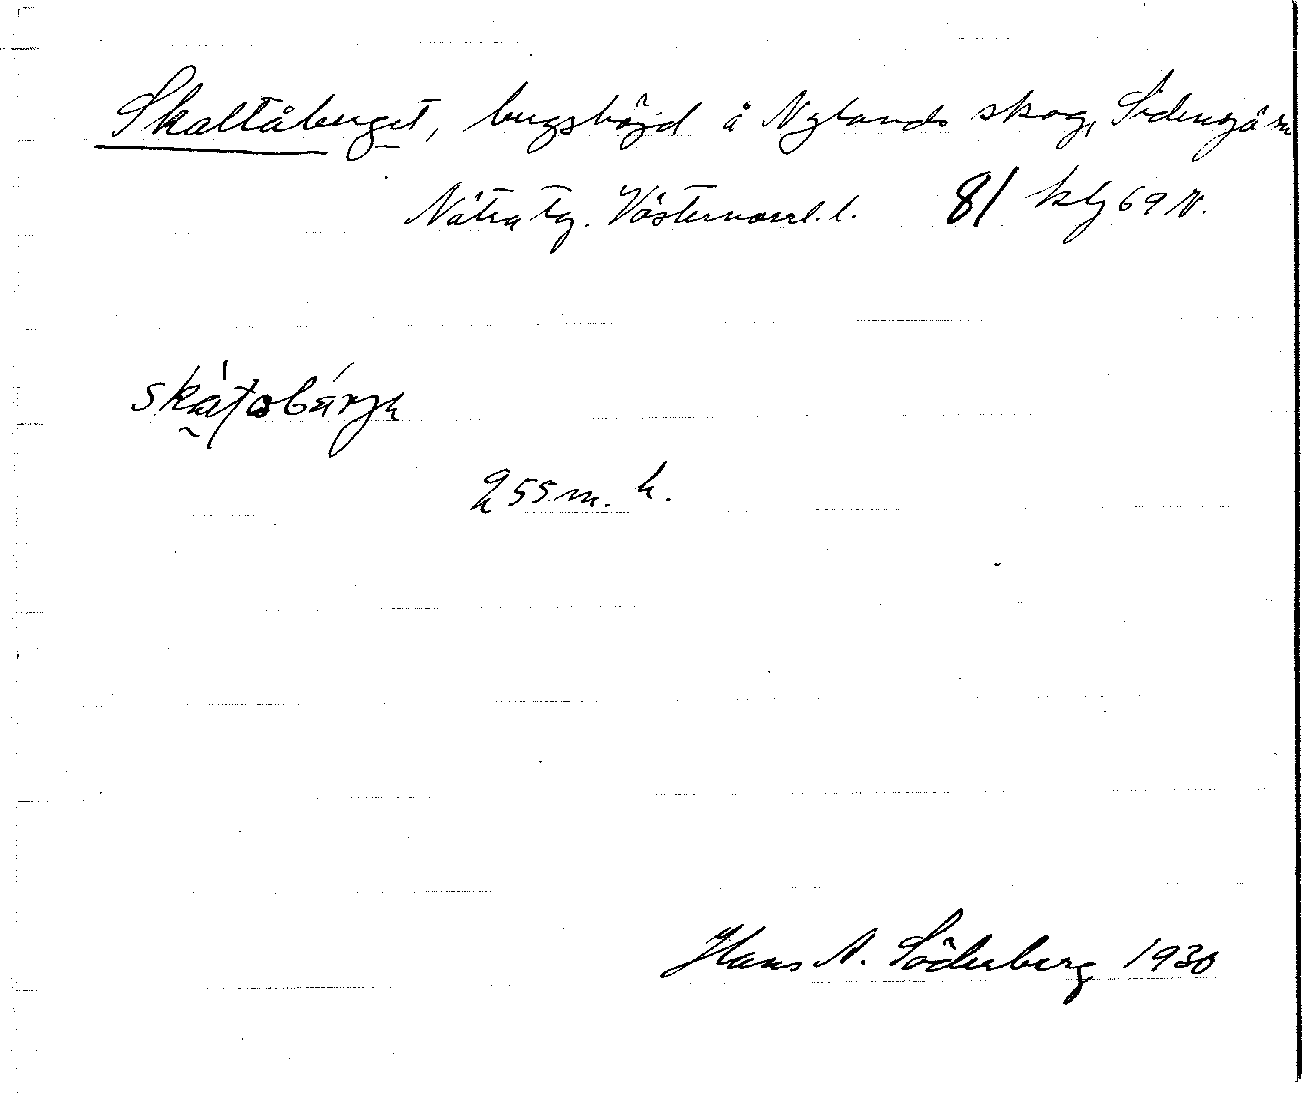 Skaltåberget, bergshöjd å Nylands skog, Sidensjö sn
Nätra tg. Västernorrl. l. 81 kbl 69 N.
255 m. h.
Hans A. Söderberg 1930